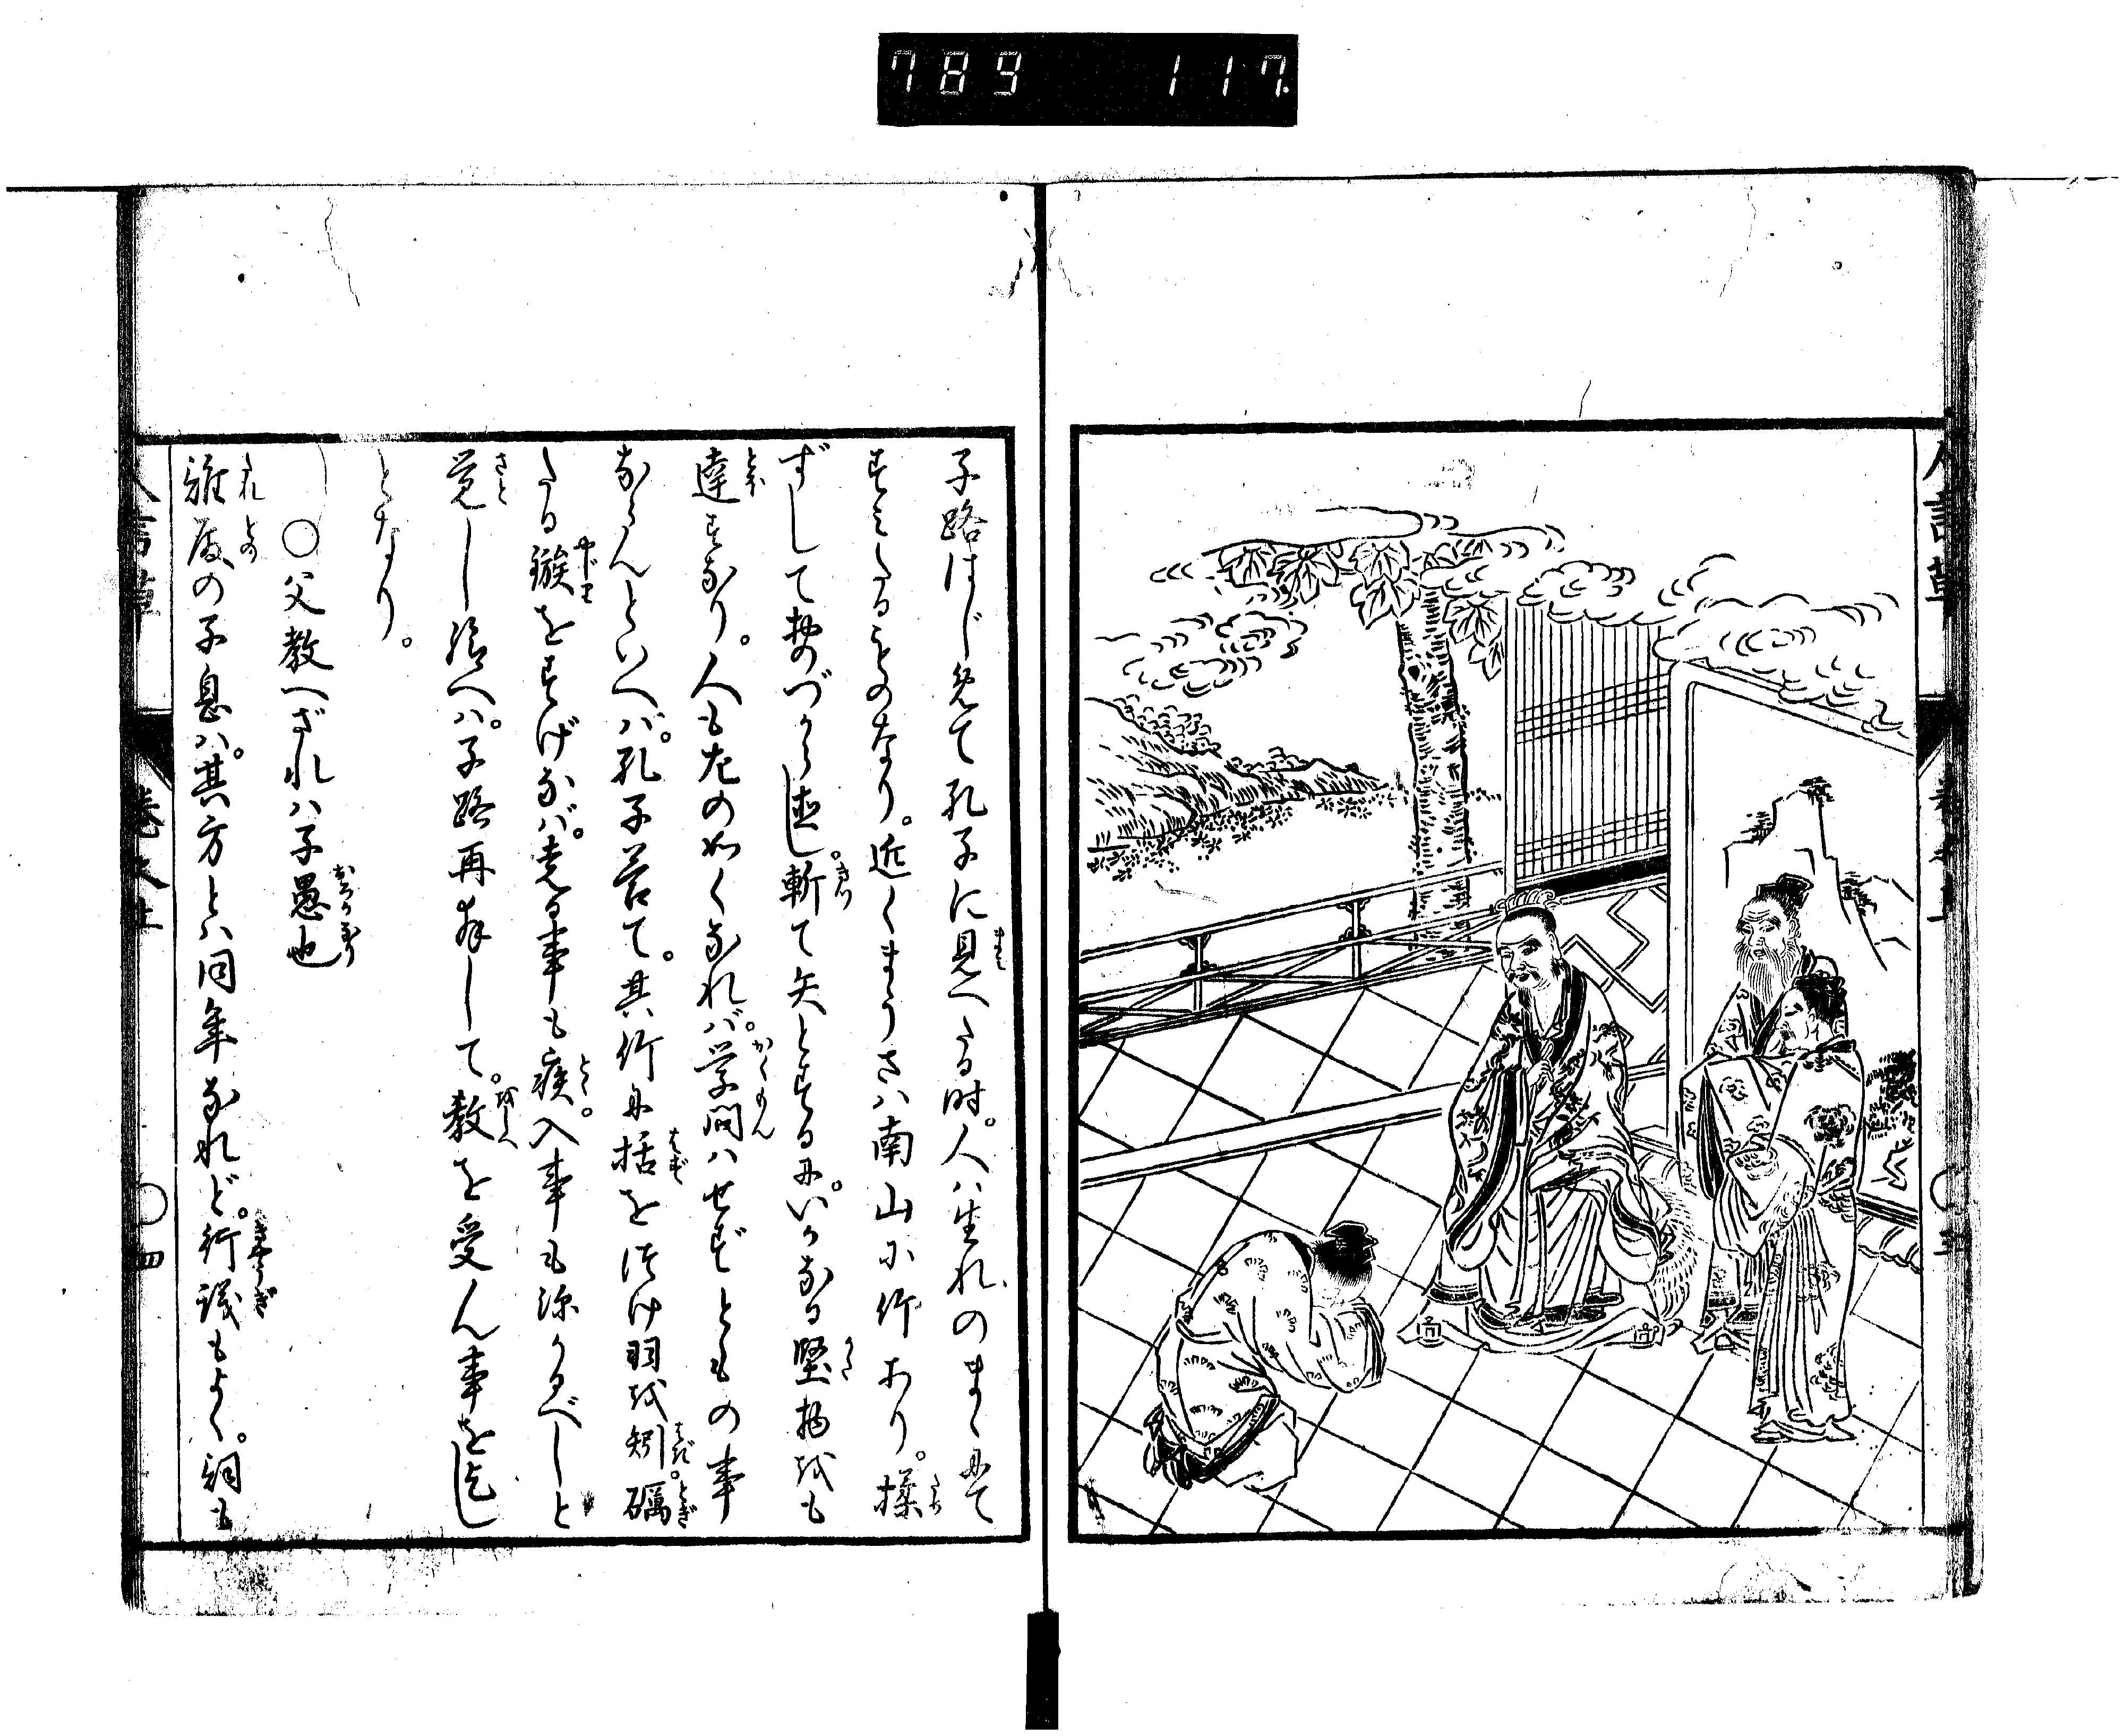 789 117
子路はじめて孔子に見へたる時。人ハ生れのまゝにて
すミたるものなり。近くまうさハ南山に竹あり。揉
ずしておのづから直し。斬て矢とするに。いかなる堅物をも
達すなり。人も左の如くなれバ。学問ハせずともの事
ならんといへバ。孔子答て。其竹に括をつけ羽を矧。礪
たる鏃をすげなバ。走る事も疾。入事も深かるべしと
覚し給へハ。子路再拝して。教を受ん事を乞し
となり。
○父教へざれハ子愚也
誰殿の子息ハ。其方とハ同年なれど。行議もよく。詞も